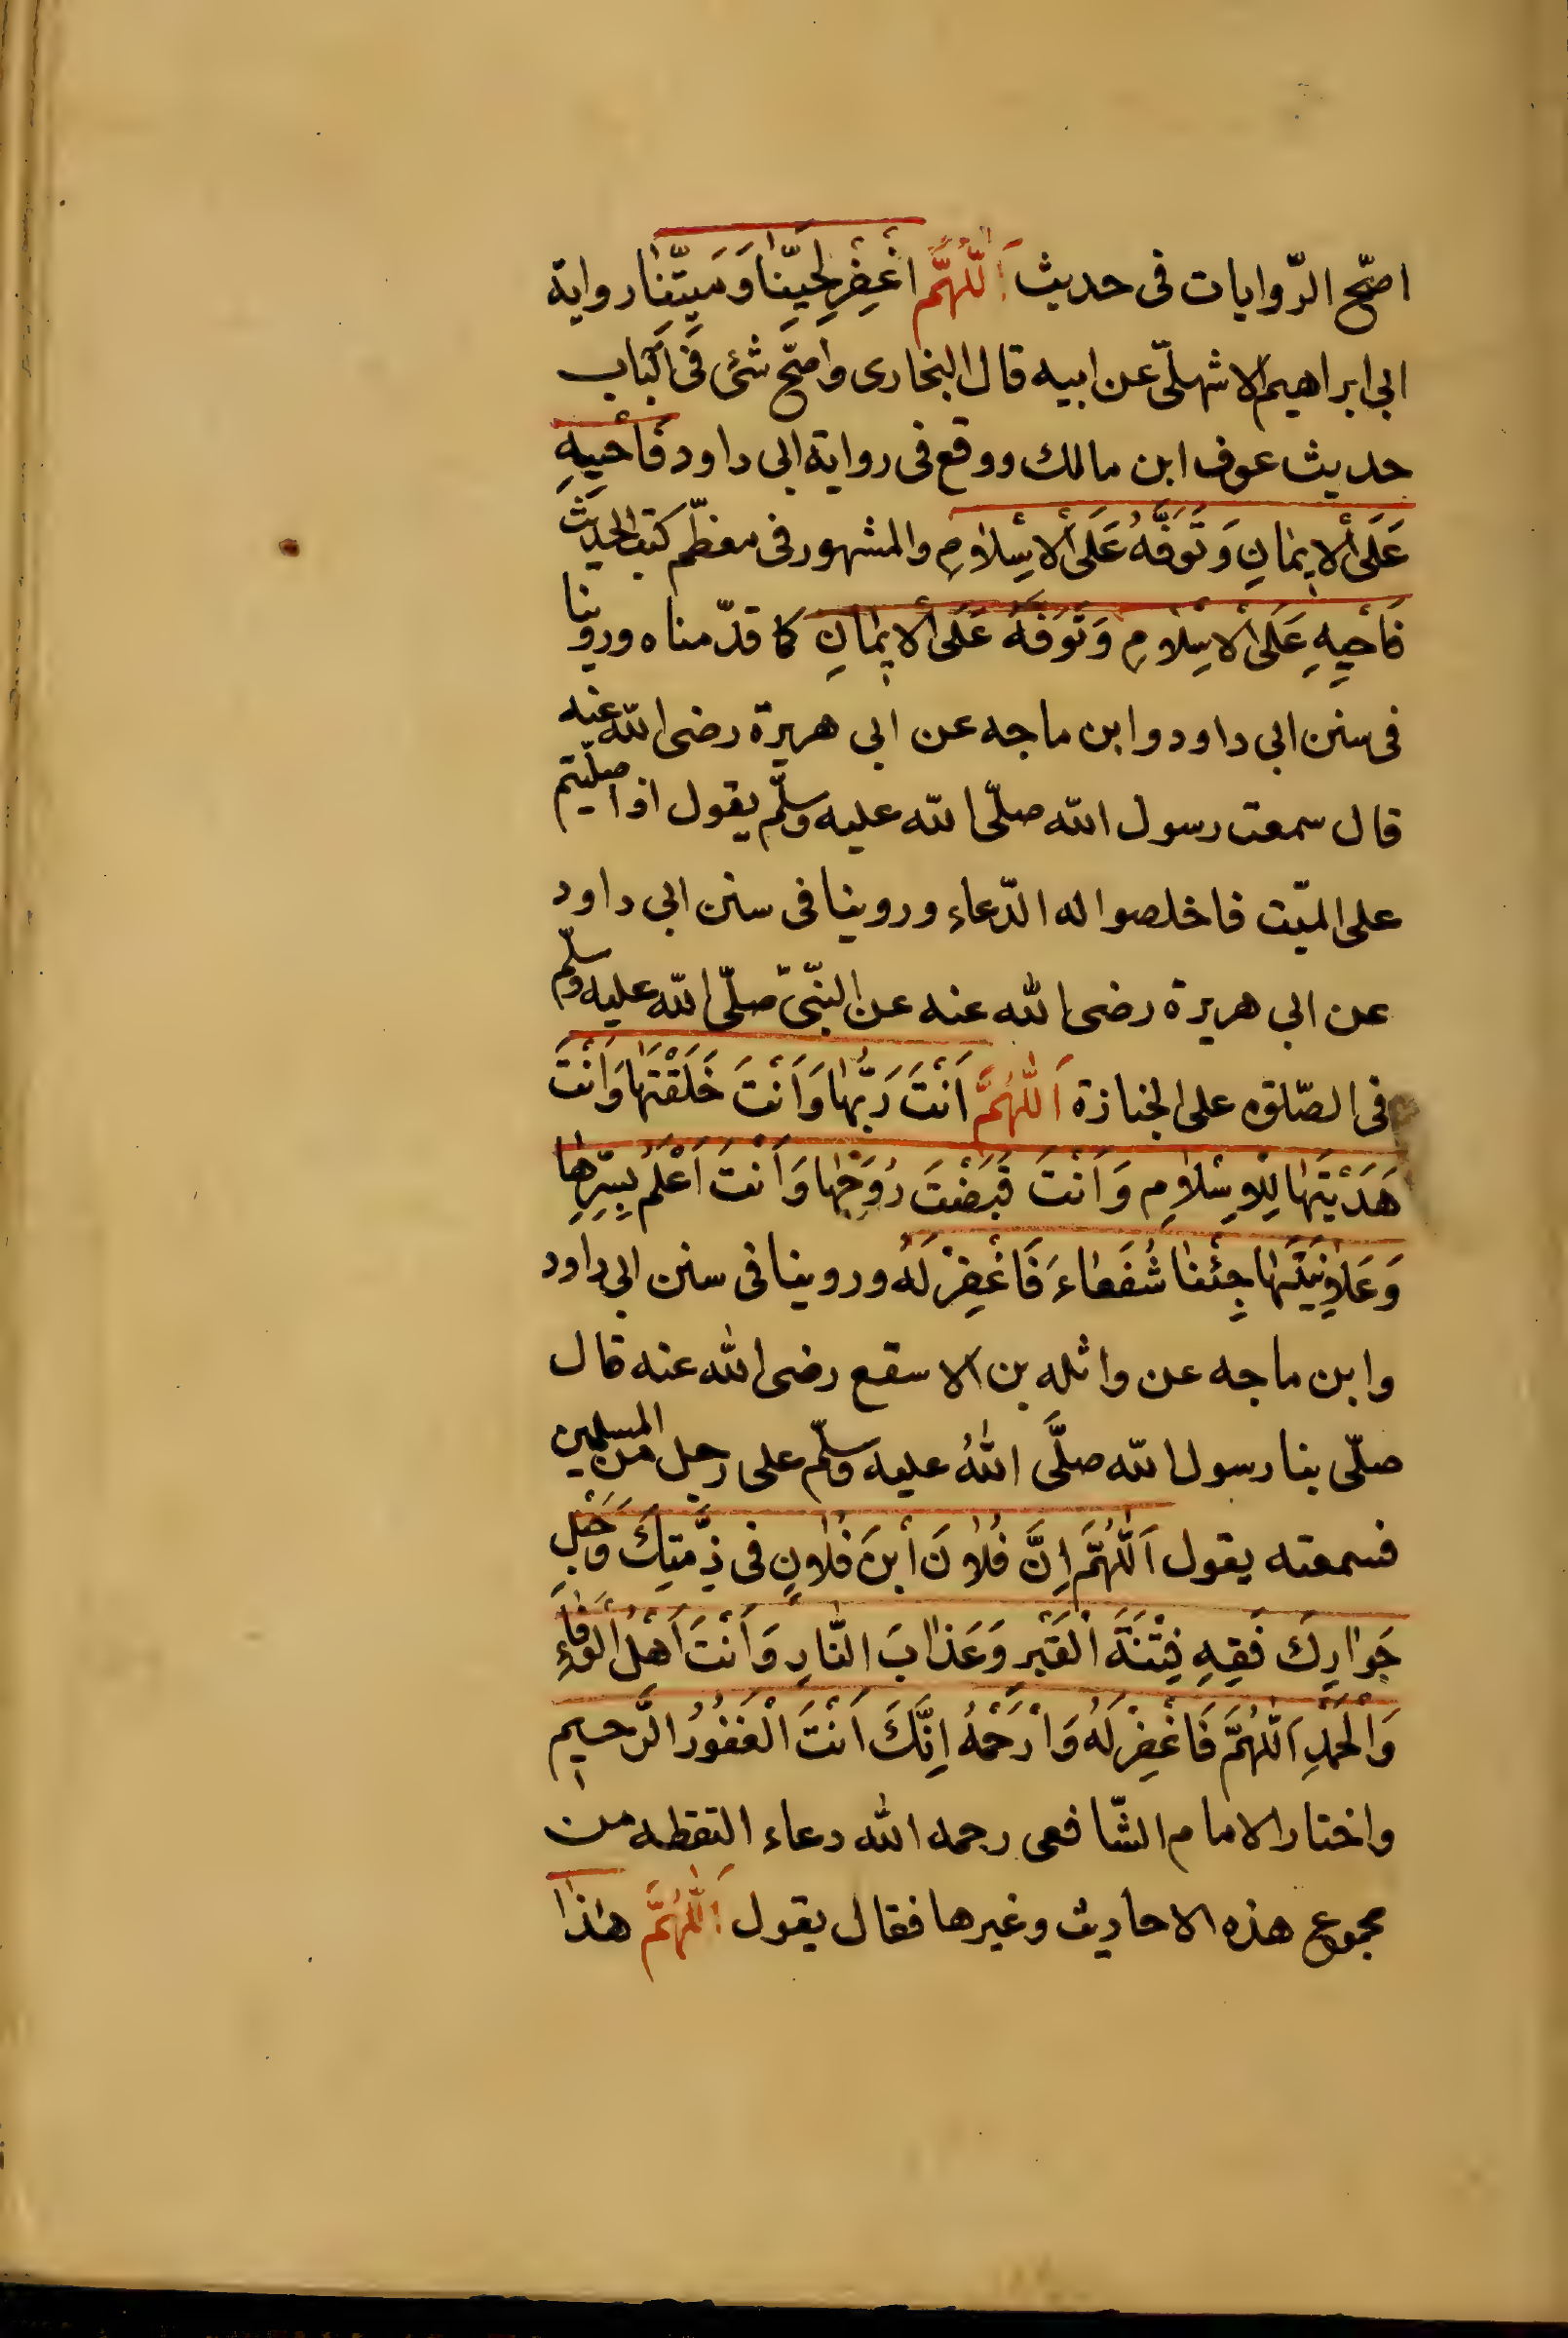 اصّح الرّوايات فى حديث اَللّٰهُمَّ اغْفِرْ لِحَيِّنٰا وَمَيِّتِنٰا رواية
ابى ابراهيم الاشهلىّ عن ابيه قال البخارى واصّح شئ فى الباب
حديث عوف ابن مالك ووقع فى رواية ابى داود فَاَحْيِهِ
عَلَى الْاِيمٰانِ وَتَوَفَّهُ عَلَى الْاِسْلٰامِ والمشهور فى معظّم كتب الحديث
فَاَحْيِهِ عَلَى الْاِسْلٰامِ وَتَوَفَّهُ عَلَى الْاِيمٰانِ كما قدّمناه وروينا
فى سنن ابى داود وابن ماجه عن ابى هريرة رضى الله عنه
قال سمعت رسول الله صلّى الله عليه وسلّم يقول اذا صلّيتم
على الميّت فاخلصوا له الدّعاء وروينا فى سنن ابى داود
عن ابى هريرة رضى الله عنه عن النّبىّ صلّى الله عليه وسلّم
فى الصّلوة على الجنازة اَللّٰهُمَّ اَنْتَ رَبُّهٰا وَاَنْتَ خَلَقْتَهٰا وَاَنْتَ
هَدَيْتَهٰا لِلْاِسْلٰامِ وَاَنْتَ قَبَضْتَ رُوحَهٰا وَاَنْتَ اَعْلَمُ بِسِرِّهٰا
وَعَلٰانِيَتِهٰا جِئْنٰا شُفَعٰاءَ فَاغْفِرْ لَهُ وروينا فى سنن ابى داود
وابن ماجه عن واثله بن الاسقع رضى الله عنه قال
صلّى بنا رسول الله صلَّى اللهُ عليه وسلّم على رجل من المسلمين
فسمعته يقول اَللّٰهُمَّ اِنَّ فُلٰانَ ابْنَ فُلٰانٍ فى ذِمَّتِكَ وَحَبْلِ
جَوٰارِكَ فَقِهِ فِتْنَةَ الْقَبْرِ وَعَذٰابَ النّٰارِ وَاَنْتَ اَهْلُ الْوَفٰاءِ
وَالْحَمْدِ اَللّٰهُمَّ فَاغْفِرْ لَهُ وَارْحَمْهُ اِنَّكَ اَنْتَ الْغَفُورُ الرَّحيم
واختار الامام الشّافعى رحمه الله دعاء التقطه من
مجموع هذه الاحاديث وغيرها فقال يقول اَللّٰهُمَّ هٰذٰا